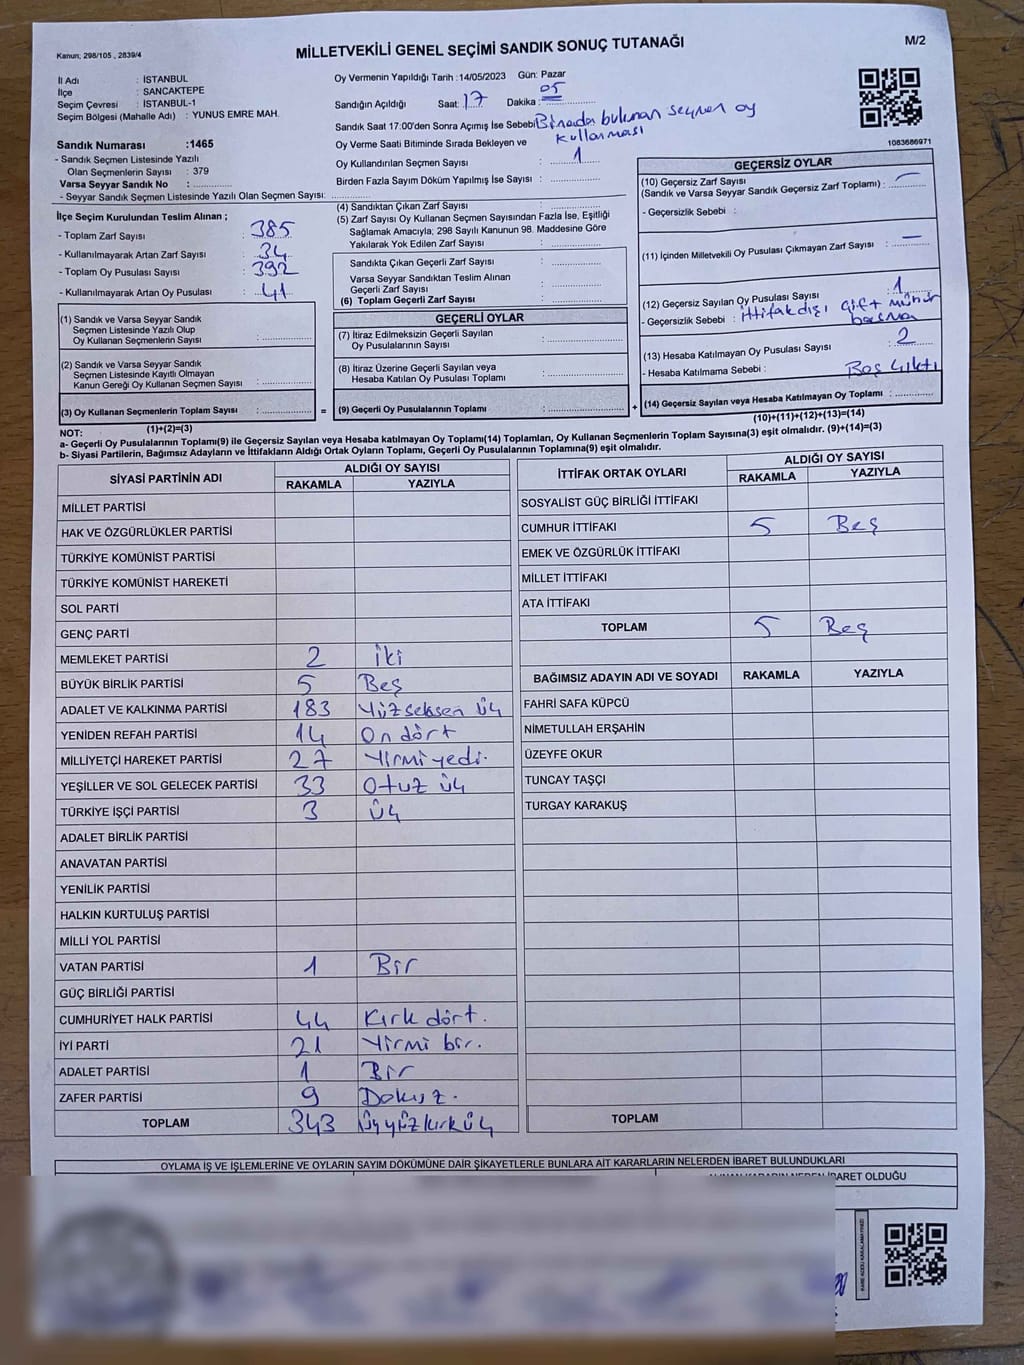 Kanun; 298/105 , 2839/4
MİLLETVEKİLİ GENEL SEÇİMİ SANDIK SONUÇ TUTANAĞI
M/2
İl Adı : İSTANBUL
İlçe : SANCAKTEPE
Seçim Çevresi : İSTANBUL-1
Seçim Bölgesi (Mahalle Adı) : YUNUS EMRE MAH.
Oy Vermenin Yapıldığı Tarih :14/05/2023 Gün: Pazar
Sandığın Açıldığı Saat: 17 Dakika : 05
Sandık Saat 17:00'den Sonra Açımış İse Sebebi Binada bulunan seçmen oy kullanması
Oy Verme Saati Bitiminde Sırada Bekleyen ve
Oy Kullandırılan Seçmen Sayısı : 1
Birden Fazla Sayım Döküm Yapılmış İse Sayısı :
1083686971
Sandık Numarası :1465
- Sandık Seçmen Listesinde Yazılı
Olan Seçmenlerin Sayısı : 379
Varsa Seyyar Sandık No :
- Seyyar Sandık Seçmen Listesinde Yazılı Olan Seçmen Sayısı:
İlçe Seçim Kurulundan Teslim Alınan ;
- Toplam Zarf Sayısı : 385
- Kullanılmayarak Artan Zarf Sayısı : 34
- Toplam Oy Pusulası Sayısı : 392
- Kullanılmayarak Artan Oy Pusulası : 41
(1) Sandık ve Varsa Seyyar Sandık
Seçmen Listesinde Yazılı Olup
Oy Kullanan Seçmenlerin Sayısı :
(2) Sandık ve Varsa Seyyar Sandık
Seçmen Listesinde Kayıtlı Olmayan
Kanun Gereği Oy Kullanan Seçmen Sayısı :
(3) Oy Kullanan Seçmenlerin Toplam Sayısı : =
(1)+(2)=(3)
(4) Sandıktan Çıkan Zarf Sayısı :
(5) Zarf Sayısı Oy Kullanan Seçmen Sayısından Fazla İse, Eşitliği
Sağlamak Amacıyla; 298 Sayılı Kanunun 98. Maddesine Göre
Yakılarak Yok Edilen Zarf Sayısı :
Sandıkta Çıkan Geçerli Zarf Sayısı :
Varsa Seyyar Sandıktan Teslim Alınan
Geçerli Zarf Sayısı :
(6) Toplam Geçerli Zarf Sayısı :
GEÇERLİ OYLAR
(7) İtiraz Edilmeksizin Geçerli Sayılan
Oy Pusulalarının Sayısı :
(8) İtiraz Üzerine Geçerli Sayılan veya
Hesaba Katılan Oy Pusulası Toplamı :
(9) Geçerli Oy Pusulalarının Toplamı : +
GEÇERSİZ OYLAR
(10) Geçersiz Zarf Sayısı
(Sandık ve Varsa Seyyar Sandık Geçersiz Zarf Toplamı) : —
- Geçersizlik Sebebi :
(11) İçinden Milletvekili Oy Pusulası Çıkmayan Zarf Sayısı : —
(12) Geçersiz Sayılan Oy Pusulası Sayısı : 1
- Geçersizlik Sebebi : ittifak dışı çift mühür basma
(13) Hesaba Katılmayan Oy Pusulası Sayısı : 2
- Hesaba Katılmama Sebebi : Boş Çıktı
(14) Geçersiz Sayılan veya Hesaba Katılmayan Oy Toplamı :
(10)+(11)+(12)+(13)=(14)
NOT:
a- Geçerli Oy Pusulalarının Toplamı(9) ile Geçersiz Sayılan veya Hesaba katılmayan Oy Toplamı(14) Toplamları, Oy Kullanan Seçmenlerin Toplam Sayısına(3) eşit olmalıdır. (9)+(14)=(3)
b- Siyasi Partilerin, Bağımsız Adayların ve İttifakların Aldığı Ortak Oyların Toplamı, Geçerli Oy Pusulalarının Toplamına(9) eşit olmalıdır.
SİYASİ PARTİNİN ADI ALDIĞI OY SAYISI
RAKAMLA YAZIYLA
MİLLET PARTİSİ
HAK VE ÖZGÜRLÜKLER PARTİSİ
TÜRKİYE KOMÜNİST PARTİSİ
TÜRKİYE KOMÜNİST HAREKETİ
SOL PARTİ
GENÇ PARTİ
MEMLEKET PARTİSİ 2 iki
BÜYÜK BİRLİK PARTİSİ 5 Beş
ADALET VE KALKINMA PARTİSİ 183 Yüzseksen üç
YENİDEN REFAH PARTİSİ 14 On dört
MİLLİYETÇİ HAREKET PARTİSİ 27 Yirmi yedi.
YEŞİLLER VE SOL GELECEK PARTİSİ 33 Otuz üç
TÜRKİYE İŞÇİ PARTİSİ 3 üç
ADALET BİRLİK PARTİSİ
ANAVATAN PARTİSİ
YENİLİK PARTİSİ
HALKIN KURTULUŞ PARTİSİ
MİLLİ YOL PARTİSİ
VATAN PARTİSİ 1 Bir
GÜÇ BİRLİĞİ PARTİSİ
CUMHURİYET HALK PARTİSİ 44 Kırk dört.
İYİ PARTİ 21 Yirmi bir.
ADALET PARTİSİ 1 Bir
ZAFER PARTİSİ 9 Dokuz.
TOPLAM 343 Üçyüzkırküç
İTTİFAK ORTAK OYLARI ALDIĞI OY SAYISI
RAKAMLA YAZIYLA
SOSYALİST GÜÇ BİRLİĞİ İTTİFAKI
CUMHUR İTTİFAKI 5 Beş
EMEK VE ÖZGÜRLÜK İTTİFAKI
MİLLET İTTİFAKI
ATA İTTİFAKI
TOPLAM 5 Beş
BAĞIMSIZ ADAYIN ADI VE SOYADI RAKAMLA YAZIYLA
FAHRİ SAFA KÜPCÜ
NİMETULLAH ERŞAHİN
ÜZEYFE OKUR
TUNCAY TAŞÇI
TURGAY KARAKUŞ
TOPLAM
OYLAMA İŞ VE İŞLEMLERİNE VE OYLARIN SAYIM DÖKÜMÜNE DAİR ŞİKAYETLERLE BUNLARA AİT KARARLARIN NELERDEN İBARET BULUNDUKLARI
İBARET OLDUĞU